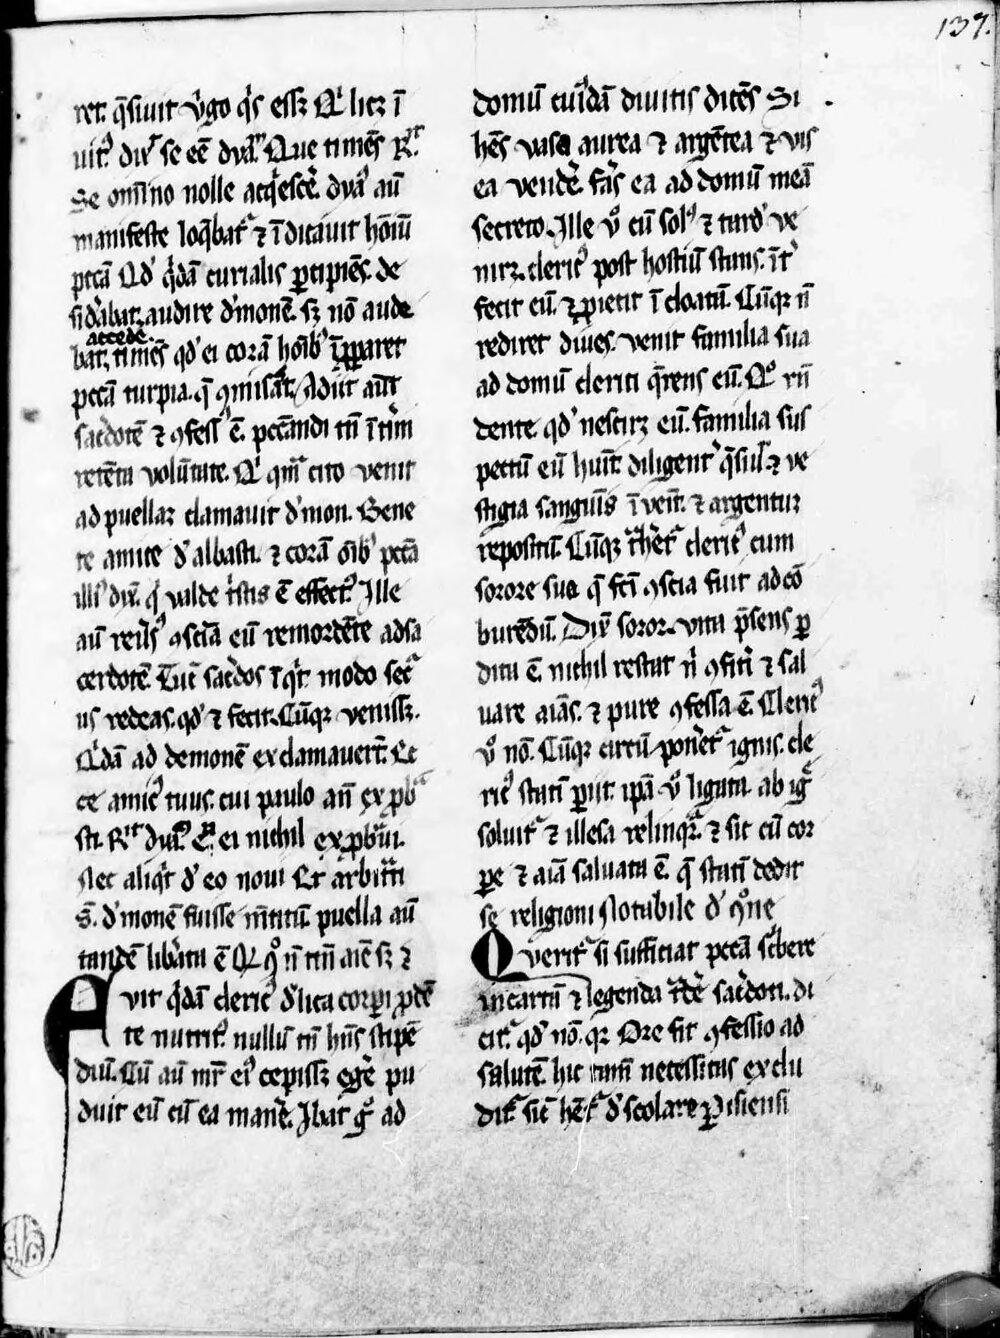 137.
ret. q̄siuit v̓go q̓s eſſꝫ Q̓ licꝫ ī
uit᷒ dix̓ se eē dyā. Que timēs R̓.
Se om̄ino nolle acq̓escē. dya᷒ aū
manifeste loq̄bat᷒ ⁊ īdicauit hōiū
pccā Qd̓ q̓dā curialis ꝑcipiēs. de
sid̓abat audire d̓monē. sꝫ nō aude
accede᷒
bat, timēs qd̓ ei corā hoīb᷒ īꝓꝑaret
pccā turpia. q̄ ꝯmisāt. Adiit aūt
sac̓dotē ⁊ ꝯfess᷒ ē. peccandi tn̄ īt̓im
retēta volūtate. Q̓ qm̄ cito venit
ad puellaꝫ clamauit d̓mon. Bene
te amice d̓albasti. ⁊ corā oīb᷒ pccā
illi᷒ dix̓. q̓ valde t̓stis ē effect᷒. Ille
aū reūs᷒ ꝯsciā eū remordēte ad sa
cerdotē. Tūc sac̓dos īq̓t. modo sec᷒
us redeas. qd̓ ⁊ fecit. Cūqꝫ veniſſꝫ.
Q̓dā ad demonē exclamauer̄t. Ec
ce amic᷒ tuus. cui paulo an̄ exꝓb᷒
sti. R̓t dyā᷒. Ego ei nichil exꝓbaui.
Nec aliq̓d d̓ eo noui Et arbit̓ti
S̄. d̓monē fuisse m̄titū. puella aū
tandē lib̓ata ē
vir q̓dā cleric᷒ d̓lica corpi ꝓdē
te nutrit᷒. nullū tn̄ hn̄s stipē
diū. Cū aū mr̄ ei᷒ cepiſſꝫ egē pu
duit eū cū ea manē. Ibat g̊ ad
domū cui᷒dā diuitis dicēs Si
hēs vasa aurea ⁊ argētea ⁊ vis
ea vendē. fās ea ad domū meā
secreto. Ille v̊ cū sol᷒ ⁊ tard᷒ ve
nirꝫ. cleric᷒ post hostiū stans. īt̓
fecit eū. ⁊ ꝓiecit ī cloacā. Cūqꝫ n̄
rediret diues. venit familia sua
ad domū clerici q̄rens eū. Q̊ rn̄
dente qd̓ nescirꝫ eū. familia sus
pectū eū huit̄ diligent᷒ q̄siuit ⁊ ve
stigia sanguīs ī ven̄t. ⁊ argentuꝫ
repositū. Cūqꝫ cleric᷒ cum
sorore sua q̄ fci ꝯscia fuit ad cō
burēdū. Dix̓ soror. vita p̄sens ꝑ
dita ē. nichil restat n̓ ꝯfiti ⁊ sal
uare aīas. ⁊ pure ꝯfessa ē. Cleric᷒
v̊ nō. Cūqꝫ circū ponēt᷒ ignis. cle
ric᷒ stati ꝑiit. ipā v̊ ligata. ab igē
soluit᷒ ⁊ illesa relinq̓t᷒. ⁊ sic cū cor
ꝑe ⁊ aīa saluata ē. q̄ stati dedit
se religioni Notabile d̓
Querit᷒ si sufficiat pccā sc̓bere
in cartā ⁊ legenda t̓dē sac̓doti. di
cit᷒ qd̓ nō. qꝛ Ore fit ꝯfessio ad
salutē. hic necessitas exclu
dit᷒ sic hēt᷒ d̓ scolare ꝑisiensi